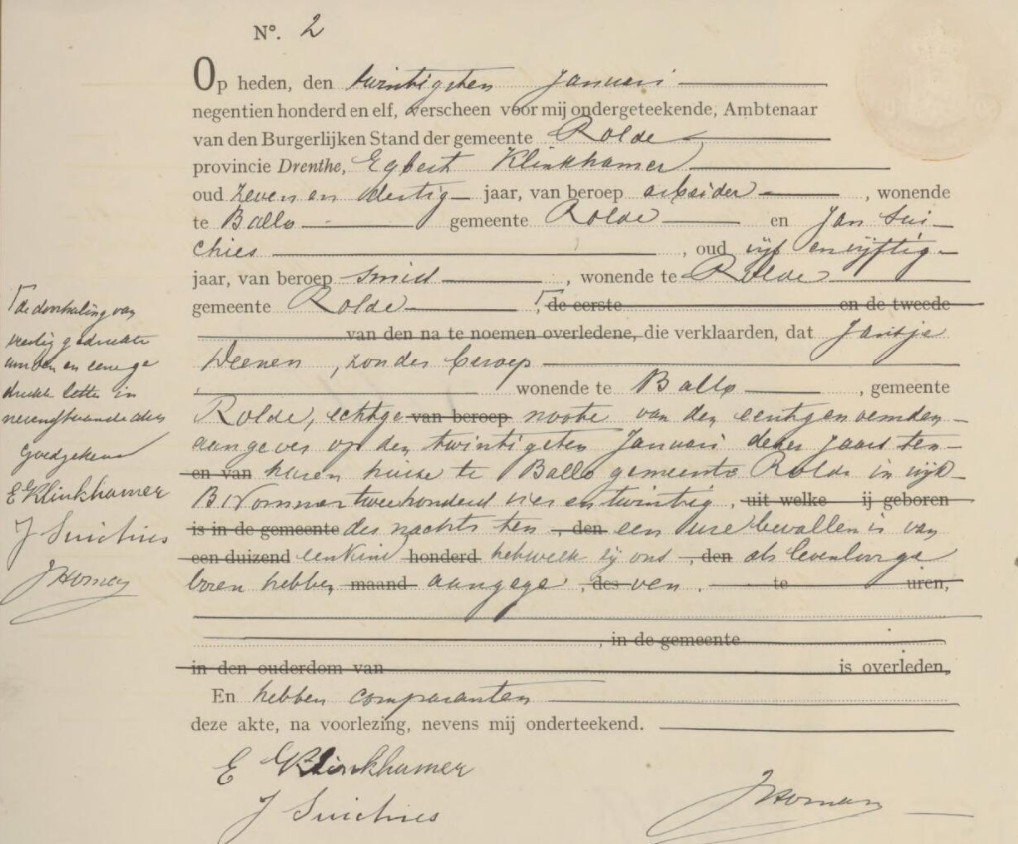 N°. 2
Op heden, den twintigsten Januari
negentien honderd en elf, verscheen voor mij ondergeteekende, Ambtenaar
van den Burgerlijken Stand der gemeente Rolde
provincie Drenthe, Egbert Klinkhamer
oud zeven en dertig jaar, van beroep arbeider, wonende
te Ballo gemeente Rolde en Jan Sui-
chies, oud vijf en vijftig
jaar, van beroep smid, wonende te Rolde
gemeente Rolde, de eerste en de tweede
van den na te noemen overledene, die verklaarden, dat Jantje
Deenen, zonder beroep
wonende te Ballo, gemeente
Rolde, echtge van beroep noote van den eerstgenoemden
aangever op den twintigsten Januari dezer jaars ten
en van hunen huize te Ballo gemeente Rolde in wijk
B Nommer tweehonderd vier en twintig, uit welke ij geboren
is in de gemeente des nachts ten, den een ure bevallen is van
een duizend een kind honderd hetwelk zij ons, den als levenloos ge
boren hebben maand aangege, des ven. te uren,
, in de gemeente
in den ouderdom van is overleden,
En hebben comparanten
deze akte, na voorlezing, nevens mij onderteekend.
E Klinkhamer
J Suichies
J Homan
de doorhaling van
veertig gedrukte
woorden en eene ge
drukte letter in
nevenstaande akte
Goedgekeurd
E Klinkhamer
J Suichies
J Homan